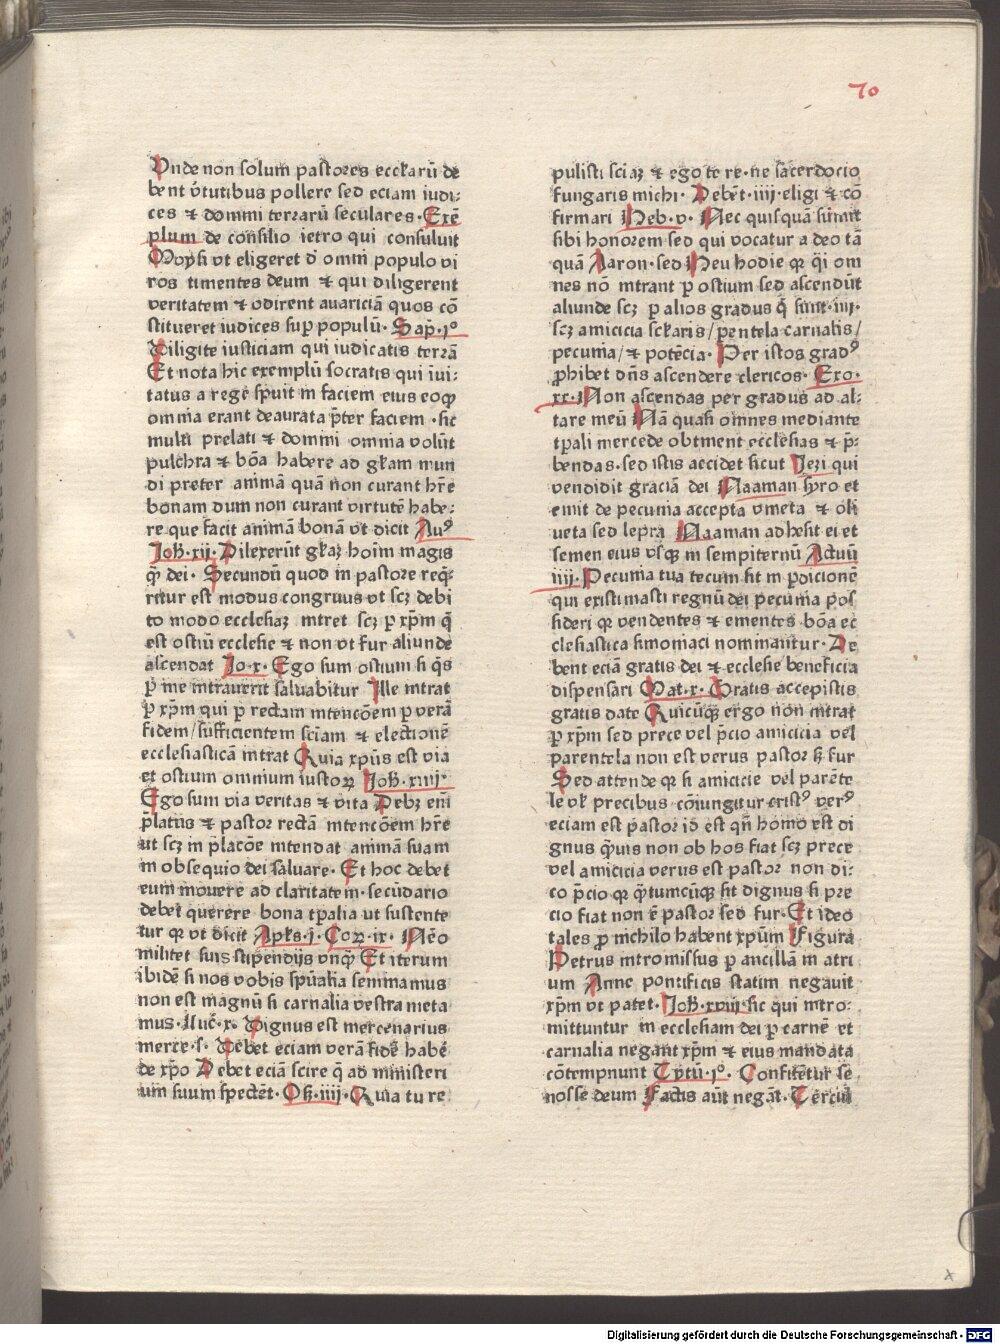 70
Vnde non solum pastores eccłaꝝ de
bent v̓tutibus pollere sed eciam iudi⸗
ces ⁊ domini terraꝝ seculares · Exē
plum de consilio ietro qui consuluit
Moysi vt eligeret d̓ omni populo vi
ros timentes deum ⁊ qui diligerent
veritatem ⁊ odirent auariciā quos cō
stitueret iudices sup̱ populū · Sap̄ · 1°
Diligite iusticiam qui iudicatis terrā
Et nota hic exemplū socratis qui iui⸗
tatus a rege spuit in faciem eius eoqꝫ
omnia erant deaurata p̄ter faciem · sic
multi prelati ⁊ domini omnia volūt
pulchra ⁊ bōa habere ad głam mun
di preter animā quā non curant hr̄e
bonam dum non curant virtutē habe⸗
re que facit animā bonā vt dicit Auꝰ
Joh̄ · xij · Dilexerūt głaꝫ hoīm magis
q̄ dei · Secundū quod in pastore req̄⸗
ritur est modus congruus vt scꝫ debi
to modo ecclesiaꝫ intret scꝫ ꝑ xp̄m q̄
est ostiū ecclesie ⁊ non vt fur aliunde
ascendat Jo · x · Ego sum ostium si q̄s
ꝑ me intrauerit saluabitur Ille intrat
ꝑ xp̄m qui ꝑ rectam intencōem ꝑ verā
fidem / sufficientem sciam ⁊ electionē
ecclesiasticā intrat Quia xp̄us est via
et ostium omnium iustoꝝ Joh̄ · xiiij ·
Ego sum via veritas ⁊ vita Debꝫ em̄
p̄latus ⁊ pastor rectā intencōem hr̄e
ut scꝫ in p̄lacōe intendat animā suam
in obsequio dei saluare · Et hoc debet
eum mouere ad claritatem · secūdario
debet querere bona tp̄alia ut sustente
tur qꝛ vt dicit Ap̄ls · j · Coꝝ · ix · Nēo
militet suis stipendijs vnq̄ Et iterum
ibidē si nos vobis sp̄ūalia seminamus
non est magnū si carnalia vestra meta
mus · Luc̄ · x · Dignus est mercenarius
merce · s · Debet eciam verā fidē habē
de xp̄o Debet eciā scire q̄ ad ministeri
um suum spectēt · Oꝫ · iiij · Quia tu re
pulisti sciaꝫ ⁊ ego te re · ne sacerdocio
fungaris michi · Debēt · iiij · eligi ⁊ cō
firmari Heb · v · Nec quisquā sūmit
sibi honorem sed qui vocatur a deo tā
quā Aaron · sed Heu hodie qꝛ q̄i om
nes nō intrant ꝑ ostium sed ascendūt
aliunde scꝫ ꝑ alios gradus q̄ sunt · iiij ·
scꝫ amicicia scłaris / parentela carnalis /
pecunia / ⁊ potēcia · Per istos gradꝰ
ꝓhibet dn̄s ascendere clericos · Exo ·
xx · Non ascendas per gradus ad al⸗
tare meū Nā quasi omnes mediante
tp̄ali mercede obtinent ecclesias ⁊ p̄⸗
bendas · sed istis accidet sicut Jezi qui
vendidit graciā dei Naaman syro et
emit de pecunia accepta vineta ⁊ oli
ueta sed lepra Naaman adhesit ei et
semen eius vsqꝫ in sempiternū Actuū
iiij · Pecunia tua tecum sit in ꝑdicionē
qui existimasti regnū dei pecunia pos
sideri qꝛ vendentes ⁊ ementes bōa ec
clesiastica simoniaci nominantur · De
bent eciā gratis dei ⁊ ecclesie beneficia
dispensari Mat · x · Gratis accepistis
gratis date Quicūqꝫ ergo non intrat
ꝑ xp̄m sed prece vel p̄cio amicicia vel
parentela non est verus pastor sꝫ fur
Sed attende qꝛ si amicicie vel parēte
le vł precibus cōiungitur cristꝰ verꝰ
eciam est pastor id est qn̄ homo est di
gnus q̄uis non ob hos fiat scꝫ prece
vel amicicia verus est pastor non di⸗
co p̄cio qꝛ q̄tumcūqꝫ sit dignus si pre
cio fiat non ē pastor sed fur · Et ideo
tales ꝓ nichilo habent xp̄um Figura
Petrus intromissus ꝑ ancillā in atri
um Anne pontificis statim negauit
xp̄m vt patet · Joh̄ · xviij · sic qui intro⸗
mittuntur in ecclesiam dei ꝑ carnē vt
carnalia negant xp̄m ⁊ eius mandata
cōtempnunt Tytū · 1° · Confitētur se
nosse deum Factis aūt negāt · Terciū
Digitalisierung gefördert durch die Deutsche Forschungsgemeinschaft - DFG